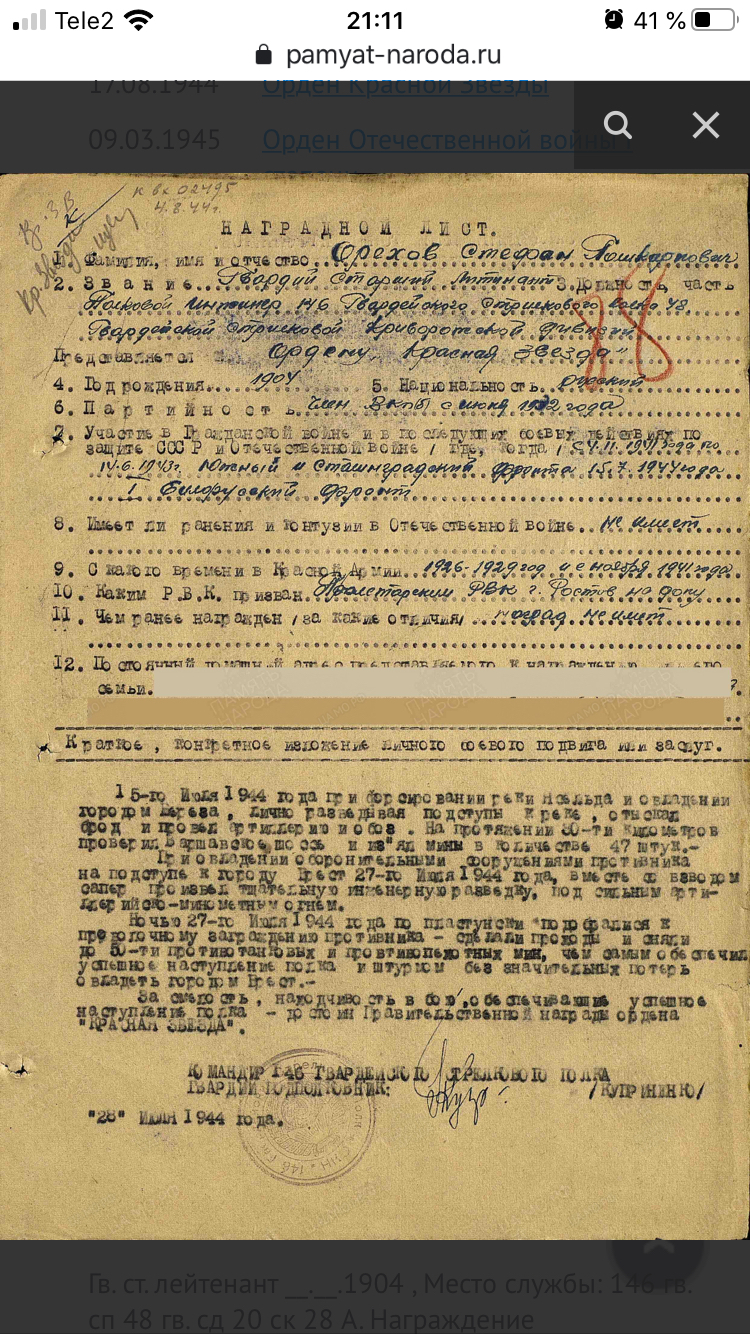 Tele2
21:11
41 %
pamyat-naroda.ru
17.08.1944 Орден Красной Звезды
09.03.1945 Орден Отечественной войны I
к вх 02495
4.8.44г.
Кр. Звезда
НАГРАДНОЙ ЛИСТ.
1. Фамилия, имя и отчество Орехов Стефан
2. Звание Гвардии Старший Литинант 3. Должность, часть
Полковой Инжинер 146 Гвардейского Стрелкового полка 48
Гвардейской Стрелковой Криворожской дивизии
Представляется к Ордену "Красная Звезда"
88
4. Год рождения 1904 5. Национальность русский
6. Партийность Член ВКПб с июня 1932 года
7. Участие в Гражданской войне и в последующих боевых действиях по
защите СССР и Отечественной войне / где, когда / с 4.11.1941 года по
14.6.1943г. Южный и Сталинградский фронта 15.7.1944 года
I Белорусский фронт
8. Имеет ли ранения и контузии в Отечественной войне не имеет
9. С какого времени в Красной Армии 1926-1929 год и с ноября 1941 года
10. Каким Р.В.К. призван Пролетарским РВК г. Ростов на дону
11. Чем ранее награжден /за какие отличия/ наград не имет
12. Постоянный домашний адрес представляемого к награждению и его
семьи.
Краткое, конкретное изложение личного боевого подвига или заслуг.
15-го Июля 1944 года при форсировании реки Ясельда и овладении
городом Береза, лично разведывая подступы к реке, отыскал
брод и провел артиллерию и обоз. На протяжении 30-ти километров
проверил Варшавское шоссе и из"ял мины в количестве 47 штук.-
При овладении оборонительными сооружениями противника
на подступе к городу Брест 27-го Июля 1944 года, вместе со взводом
сапер произвел тщательную инженерную разведку, под сильным арти-
ллерийско-минометным огнем.
Ночью 27-го Июля 1944 года по пластунски подобралися к
проволочному заграждению противника - сделали проходы и сняли
до 50-ти противотанковых и противопехотных мин, чем самым обеспечил
успешное наступление полка и штурмом без значительных потерь
овладеть городом Брест.-
За смелость, находчивость в бою, обеспечивающие успешное
наступление полка - достоин Правительственной награды ордена
"КРАСНАЯ ЗВЕЗДА".
КОМАНДИР 146 ГВАРДЕЙСКОГО СТРЕЛКОВОГО ПОЛКА
ГВАРДИИ ПОДПОЛКОВНИК: /КУПРИНЕНКО/
"28" ИЮЛЯ 1944 года.
Гв. ст. лейтенант __.__.1904 , Место службы: 146 гв.
сп 48 гв. сд 20 ск 28 А. Награждение